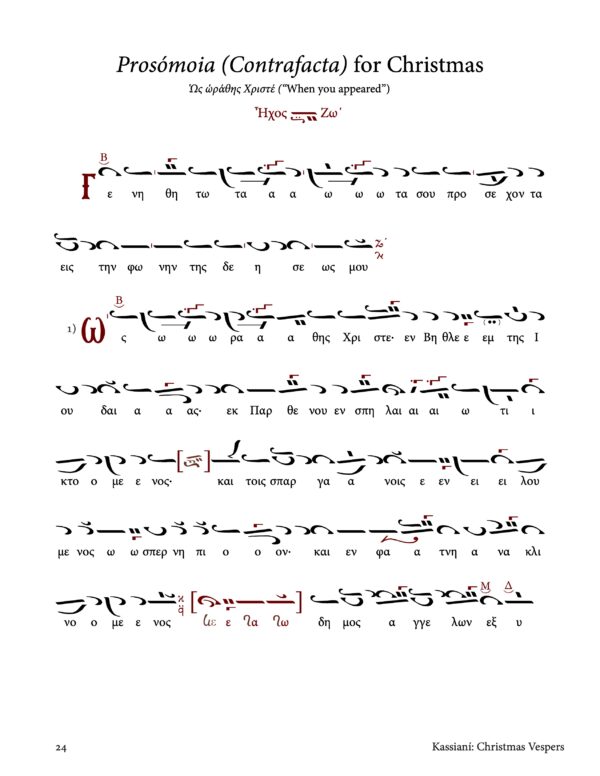 Prosómoia (Contrafacta) for Christmas
Ὡς ὡράθης Χριστέ (“When you appeared”)
Ἦχος Ζω΄
Β
Γ ε νη θη τω τα α α ω ω ω τα σου προ σε χον τα
εις την φω νην της δε η σε ως μου
Β
1) Ω ς ω ω ω ρα α α θης Χρι στε· εν Βη θλε ε εμ της Ι
ου δαι α α ας· εκ Παρ θε νου εν σπη λαι αι αι ω τι ι
κτο ο με ε νος· και τοις σπαρ γα α νοις ε εν ει ει λου
με νος ω ω σπερ νη πι ο ο ον· και εν φα α τνη α να κλι
Μ Δ
νο ο με ε νος δη μος α γγε λων εξ υ
24 Kassianí: Christmas Vespers